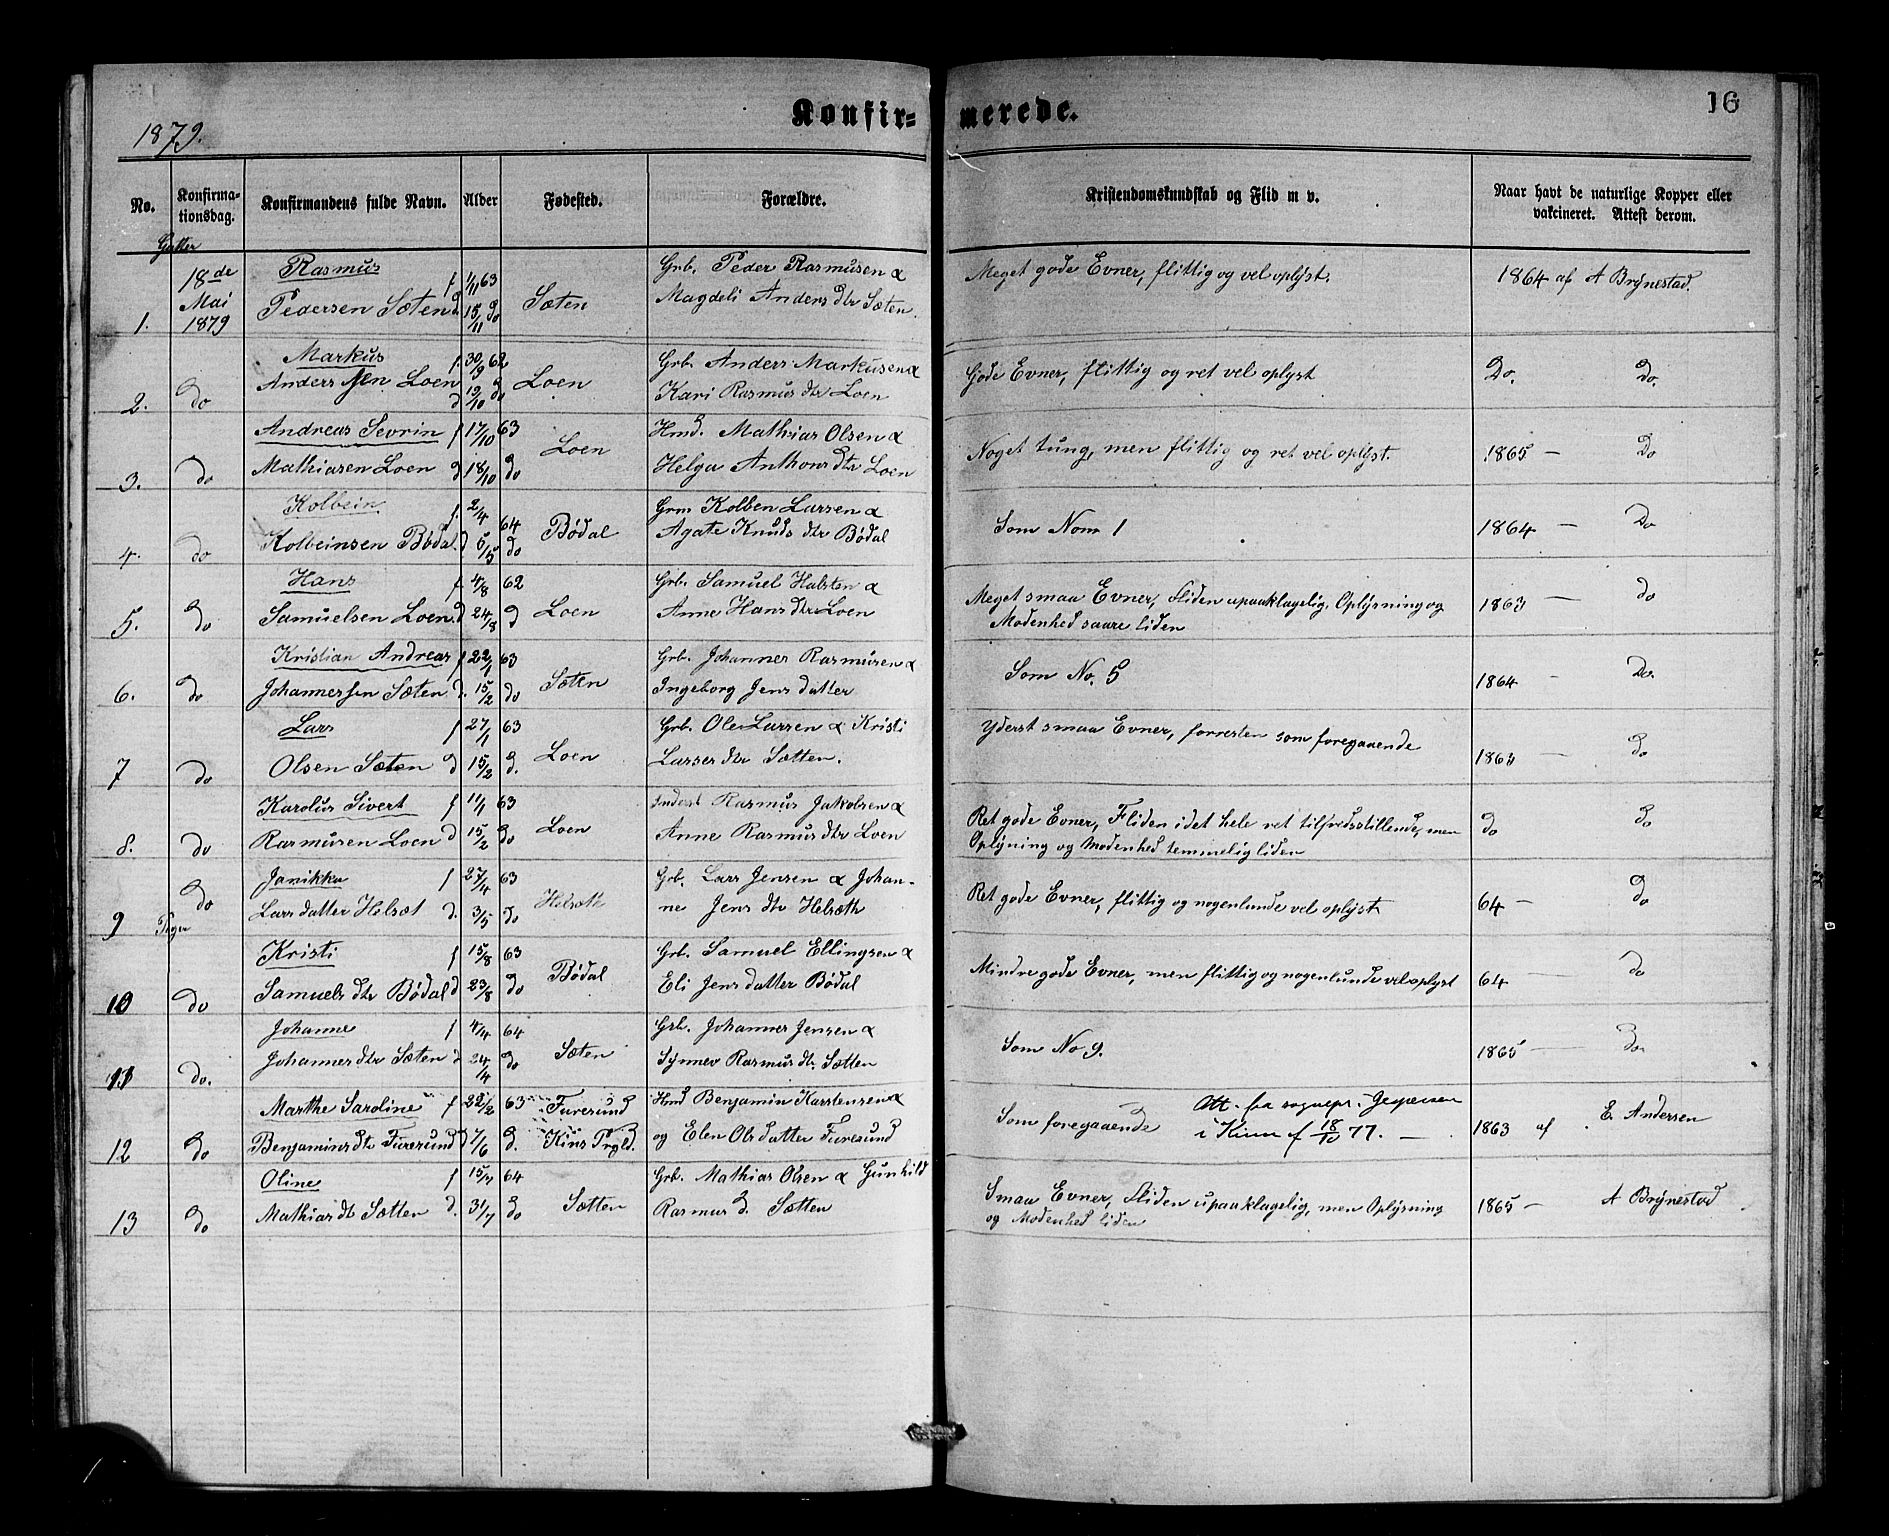 1879.
Konfir= merede.
16
No.
Konfirma-
tionsdag.
Konfirmandens fulde Navn.
Alder
Fødested.
Forældre.
Kristendomskundskab og Flid m v.
Naar havt de naturlige Kopper eller
vakcineret. Attest derom.
Gutter
18de Rasmus f 1/11 63 Grb. Peder Rasmusen & Meget gode Evner, flittig og vel oplyst. 1864 af A Brynestad.
1. Mai 1879 Pedersen Sæten d 15/11 do Sæten Magdeli Anders dtr Sæten.
Markus f. 30/9 62 Grb. Anders Markusen &
2. do Anderssen Loen d 13/10 do Loen Kari Rasmus dtr Loen Gode Evner, flittig og ret vel oplyst Do. Do.
Andreas Sevrin f 17/10 63 Hmd. Mathias Olsen &
3. do Mathiasen Loen d 18/10 do Loen Helga Anthons dtr Loen Noget tung, men flittig og ret vel oplyst. 1865 — Do
Kolbein f. 2/4 64 Grm Kolben Larsen &
4. do Kolbeinsen Bødal. d 5/5 do Bødal Agate Knuds dtr Bødal Som Nom 1 1864 — Do
Hans f 4/8 62 Grb. Samuel Halsten & Meget smaa Evner, Fliden upaaklagelig, Oplysning og
5. do Samuelsen Loen. d 24/8 d Loen Anne Hans dtr Loen Modenhed saare liden 1863 — do
Kristian Andreas f 22/1 63 Grb. Johannes Rasmusen &
6. do Johannessen Sæten d. 15/2 do Sæten Ingeborg Jens datter Som No. 5 1864 — Do.
Lars f 27/1 63 Grb. Ole Larsen & Kristi
7 do Olsen Sæten d 15/2 d. Loen Larser dtr Sætten. Yderst smaa Evner, forresten som foregaaende — Do
Karolus Sivert f 11/1 63 Inderst Rasmus Jakobsen & Ret gode Evner, Fliden idet hele ret tilfredsstillende, men
8. do Rasmusen Loen d 15/2 do Loen Anne Rasmus dtr Loen Oplysning og Modenhed temmelig liden do Do
Janikka f 27/4 63 Grb. Lars Jensen & Johan-
9 do Lars datter Helsæt d. 3/5 do Helsæth ne Jens dtr Helsæth Ret gode Evner, flittig og nogenlunde vel oplyst. 64 — Do
Piger
Kristi f 15/8 63 Grb. Samuel Ellingsen &
10 do Samuels dtr Bødal d 23/8 do Bødal Eli Jens datter Bødal Mindre gode Evner, men flittig og nogenlunde vel oplyst 64 — do
Johanne f 4/4 64 Grb. Johannes Jensen &
11 do. Johannes dtr Sæten d 24/4 do Sæten Synnev Rasmus dtr. Sætten Som No 9. 1865 — do.
Marthe Saroline f 22/2 63 Furesund Hmd Benjamin Karstensen & Att. fra sognepr. Jespersen
12 do Benjamins dtr Furesund d 7/6 d. Kins Prgld. og Elen Ols datter Furesund Som foregaaende i Kinn f 18/10 77. — 1863 af E. Andersen
Oline f 15/7 64 Grb. Mathias Olsen & Gunhild Smaa Evner, Fliden upaaklagelig, men Oplysning
13 do Mathias dtr Sætten d. 31/7 do Sætten Rasmus d. Sætten og Modenhed liden 1865 — A Brynestad